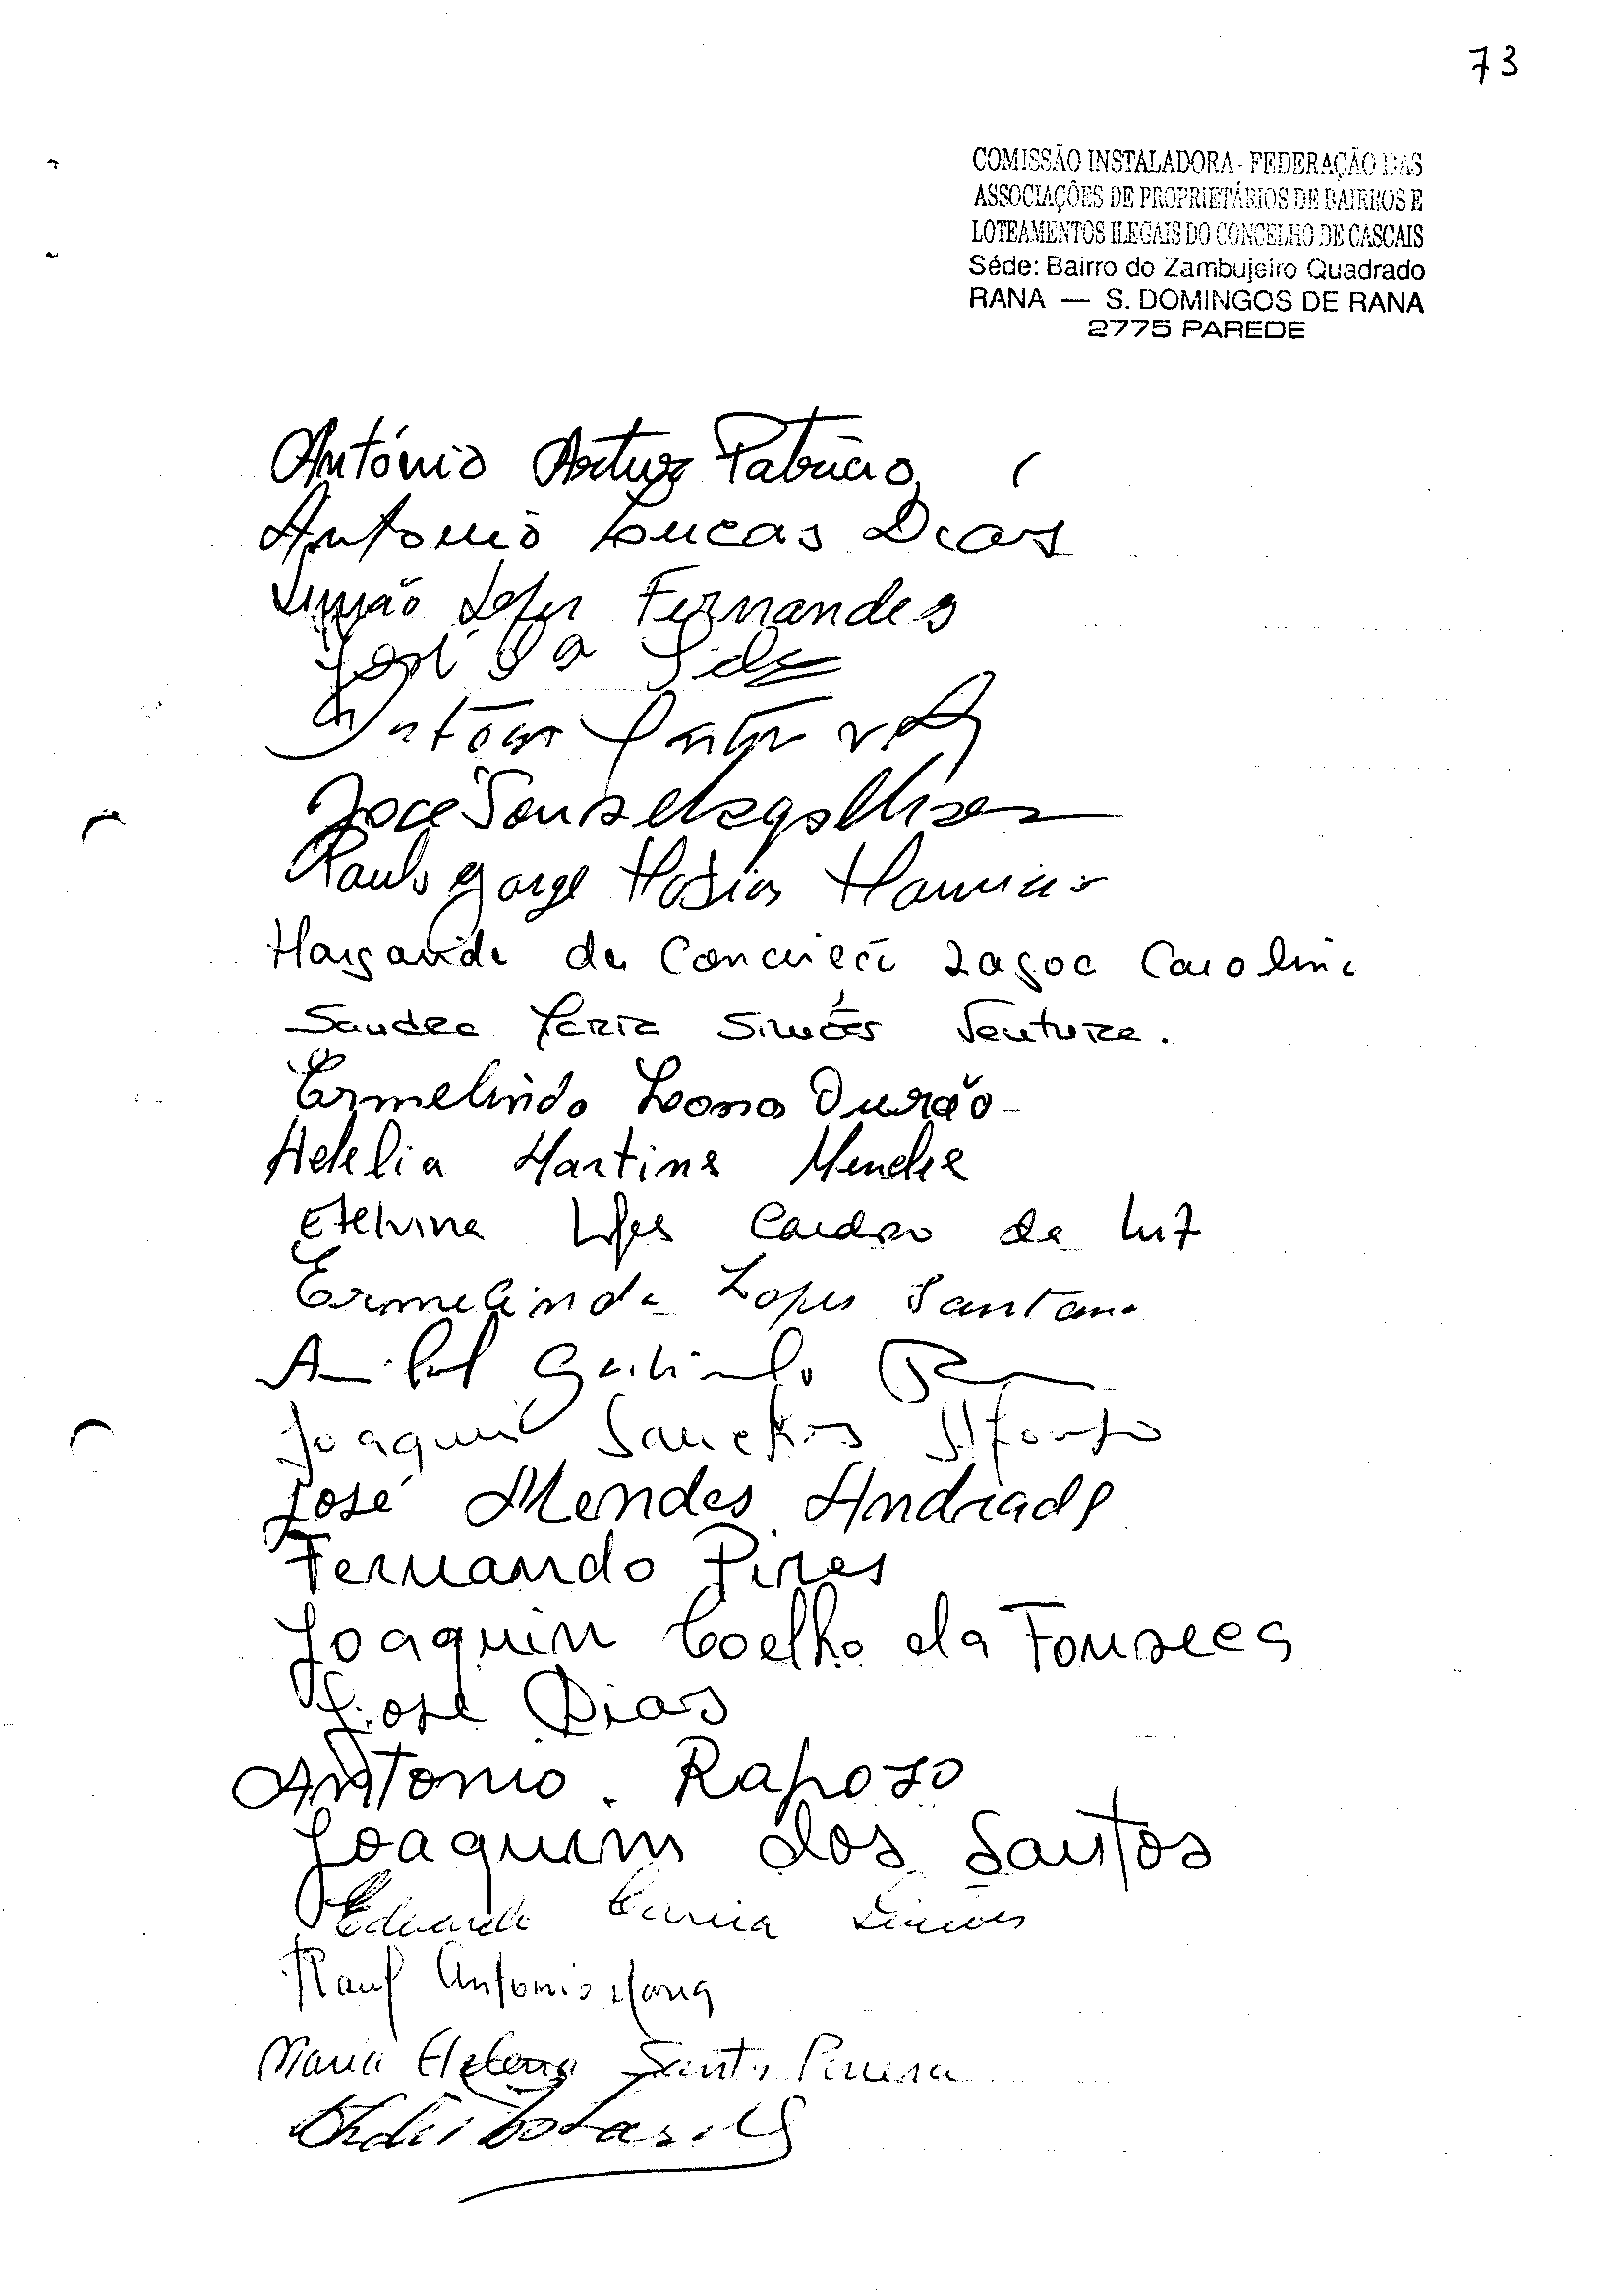 73
COMISSÃO INSTALADORA - FEDERAÇÃO DAS
ASSOCIAÇÕES DE PROPRIETÁRIOS DE BAIRROS E
LOTEAMENTOS ILEGAIS DO CONCELHO DE CASCAIS
Séde: Bairro do Zambujeiro Quadrado
RANA — S. DOMINGOS DE RANA
2775 PAREDE
António Artur Patrício
Antonio Lucas Dias
Simão Lopes Fernandes
José da Silva
António
José Sousa
Paulo Jorge Matias
Margarida da Conceição Lagoa Carolina
Sandra Maria Simões Ventura.
Ermelindo Durão
Adélia Martins Mendes
Etelvina Lopes Cardoso da Luz
Ermelinda Lopes Santana
Anibal
Joaquim Sanches Afonso
José Mendes Andrade
Fernando Pires
Joaquim Coelho da Fonseca
José Dias
Antonio. Raposo
Joaquim dos Santos
Eduardo Correia Simões
Raul Antonio
Maria Helena Santos Pereira